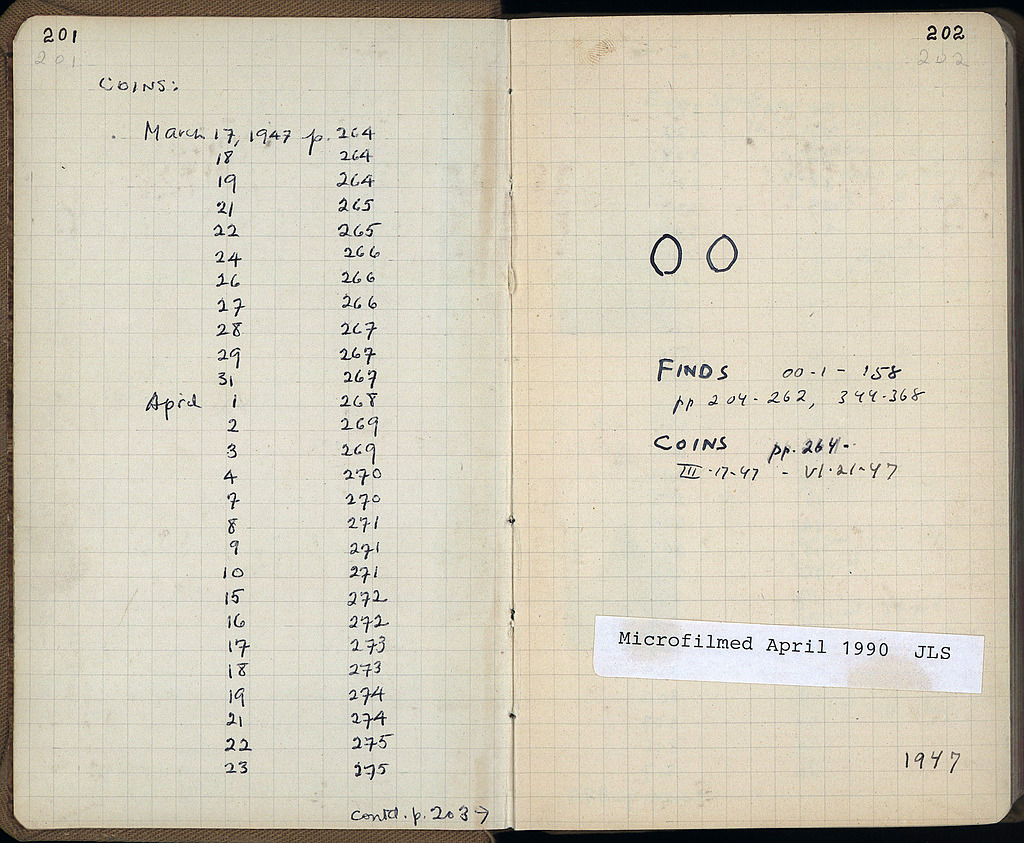 201
201
COINS:
March 17, 1947 p. 264
18 264
19 264
21 265
22 265
24 266
26 266
27 266
28 267
29 267
31 267
April 1 268
2 269
3 269
4 270
7 270
8 271
9 271
10 271
15 272
16 272
17 273
18 273
19 274
21 274
22 275
23 275
contd. p. 203→
202
202
OO
FINDS OO-1 - 158
pp 204-262, 344-368
COINS pp. 264-
III-17-47 - VI-21-47
Microfilmed April 1990 JLS
1947